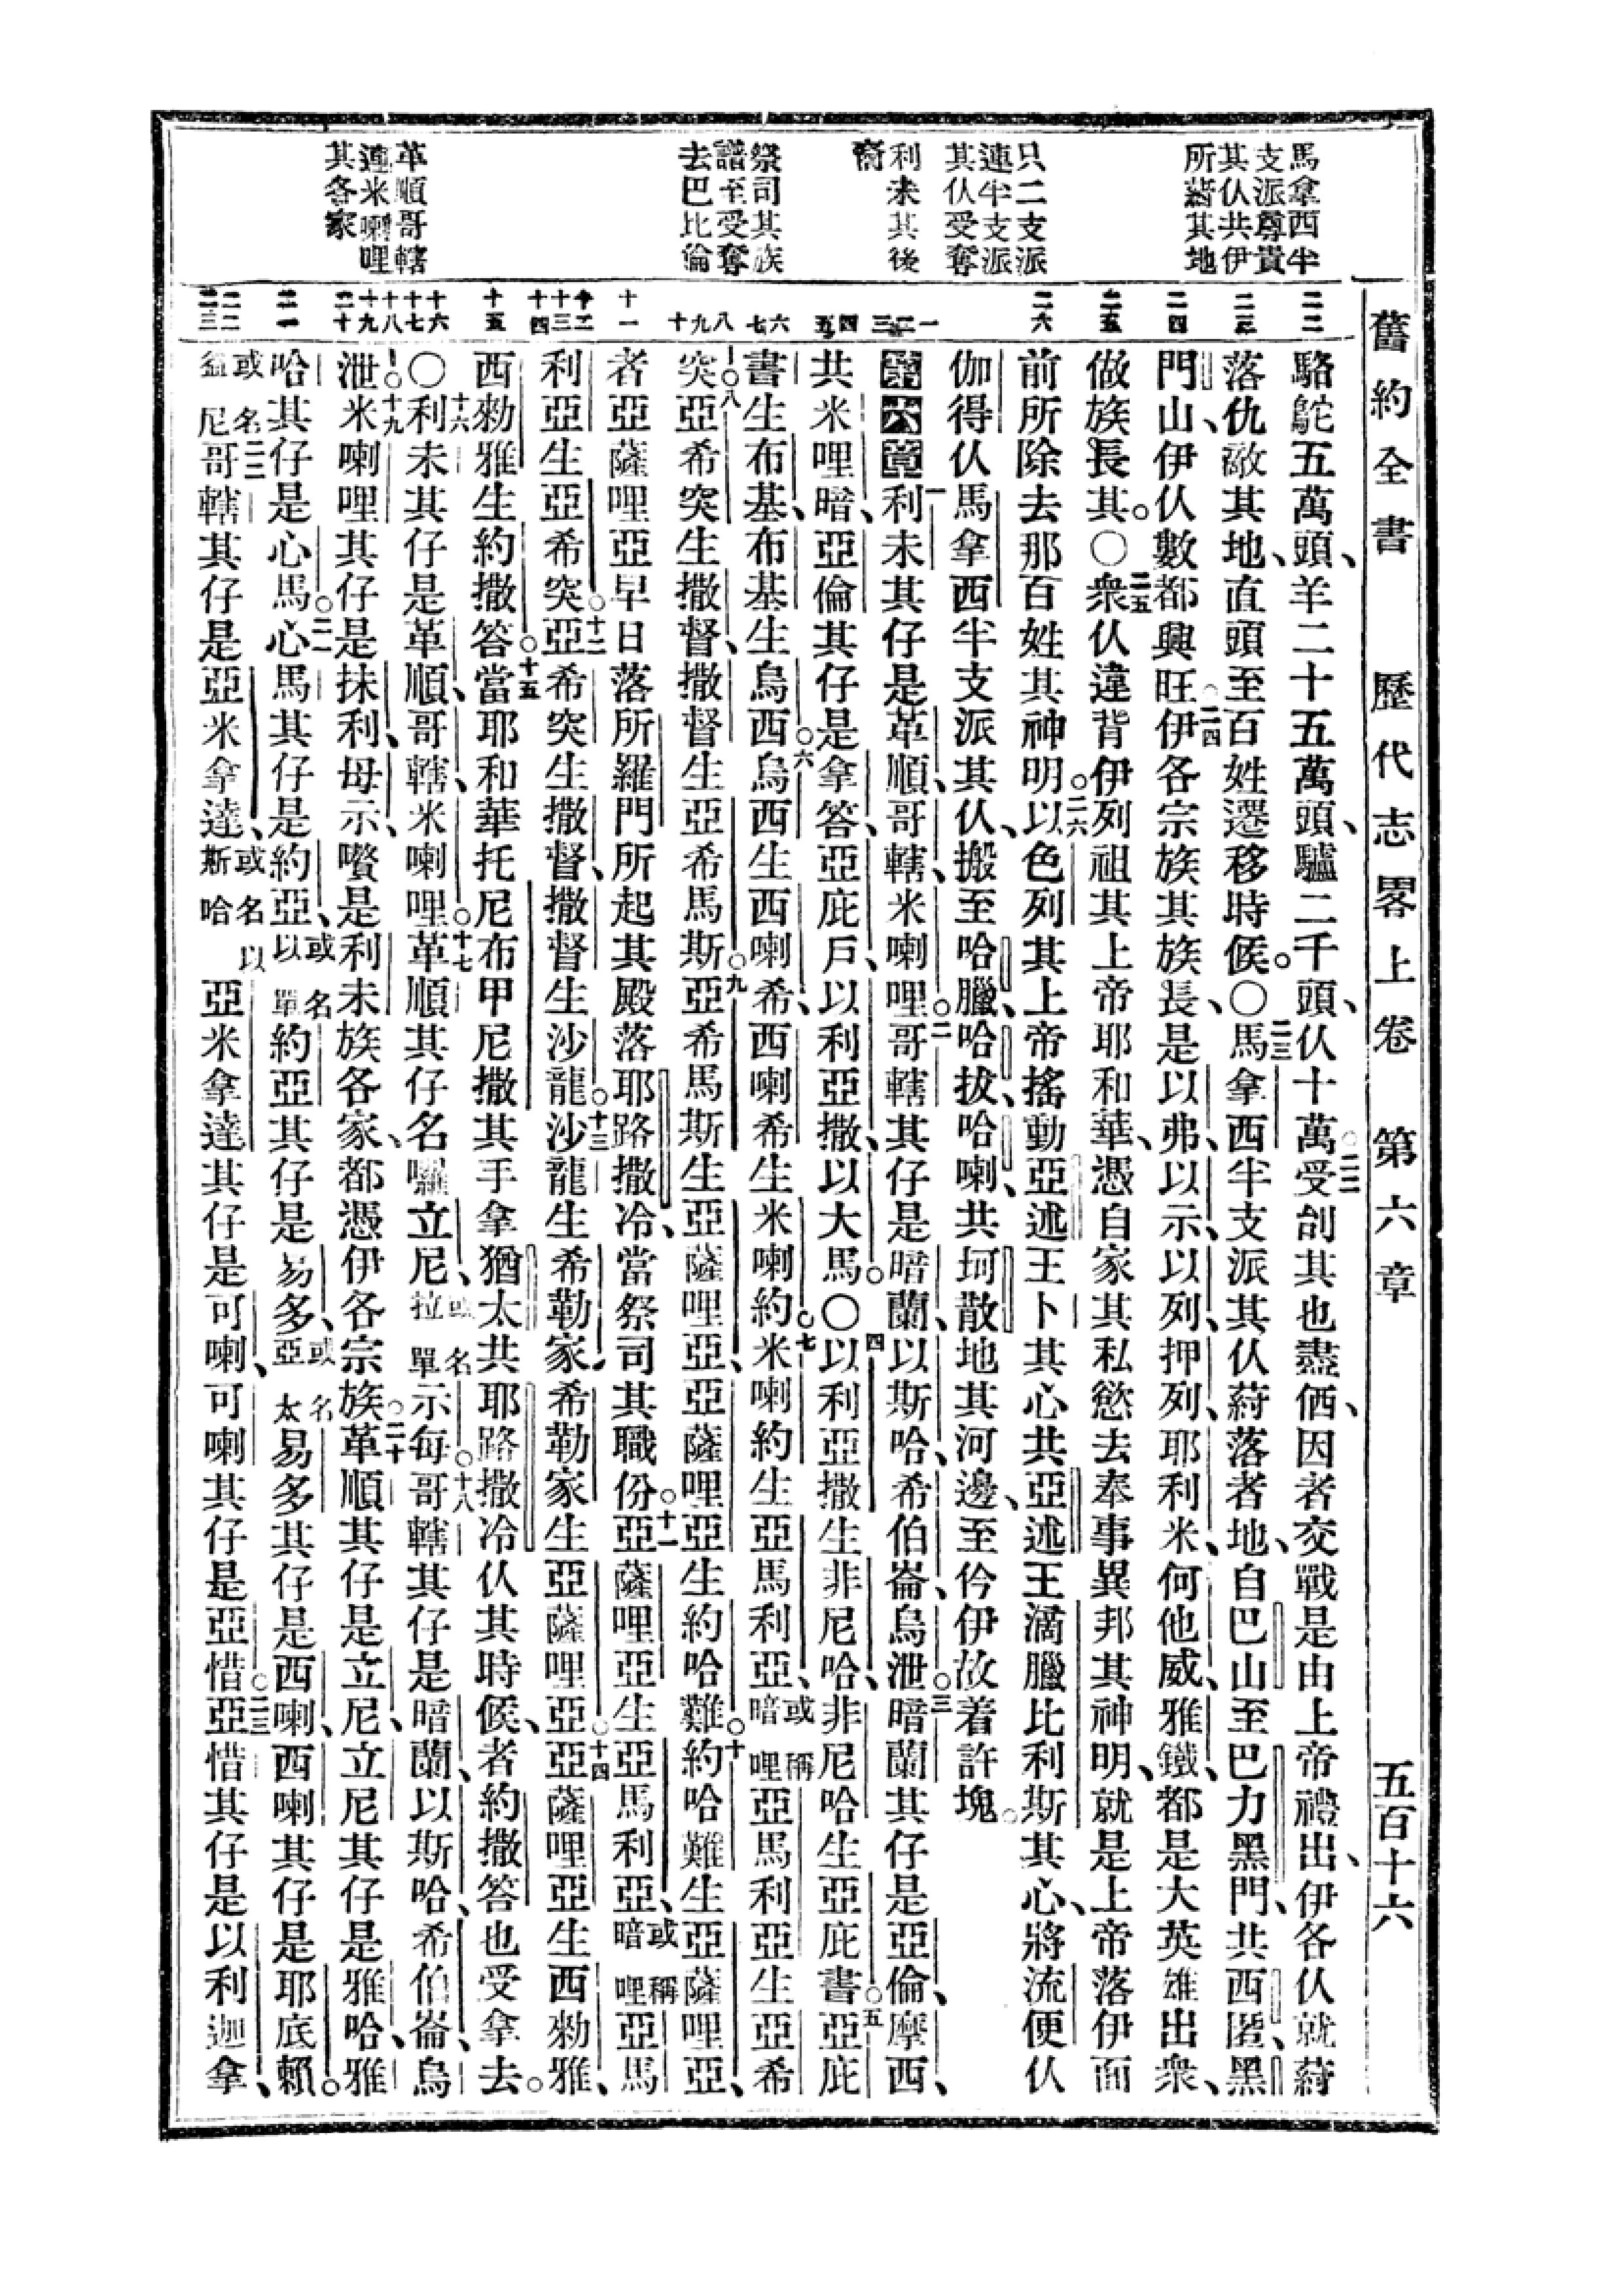 舊約全書 歷代志畧上卷 第六章 五百十六
馬拿西半
支派尊貴
其仈共伊
所蒞其地
只二支派
連半支派
其仈受奪
利未其後
裔
祭司其族
譜至受奪
去巴比倫
革順哥轄
連米喇哩
其各家
駱鴕五萬頭、羊二十五萬頭、驢二千頭、仈十萬○二二受刣其也盡価、因者交戰是由上帝禮出、伊各仈就蒔
落仇敵其地、直頭至百姓遷移時候。○二三馬拿西半支派其仈蒔落者地、自巴山至巴力黑門、共西匿、黑
門山、伊仈數都興旺○二四伊各宗族其族長、是以弗、以示、以列、押列、耶利米、何他威雅、鐵、都是大英雄出衆、
做族長其。○二五衆仈違背伊列祖其上帝耶和華、憑自家其私慾去奉事異邦其神明、就是上帝落伊面
前所除去那百姓其神明○二六以色列其上帝搖動亞述王卜其心共亞述王滴臘比利斯其心、將流便仈
伽得仈馬拿西半支派其仈、搬至哈臘、哈拔、哈喇、共坷散地其河邊、至仱伊故着許塊。
第六章 一利未其仔是革順、哥轄、米喇哩○二哥轄其仔是暗蘭、以斯哈、希伯崙、烏泄○三暗蘭其仔是亞倫、摩西、
共米哩暗、亞倫其仔是拿答、亞庇戶、以利亞撒、以大馬。○四以利亞撒生非尼哈、非尼哈生亞庇書○五亞庇
書生布基、布基生烏西○六烏西生西喇希、西喇希生米喇約○七米喇約生亞馬利亞、或稱暗哩亞馬利亞生亞希
突○八亞希突生撒督、撒督生亞希馬斯○九亞希馬斯生亞薩哩亞、亞薩哩亞生約哈難○十約哈難生亞薩哩亞、
者亞薩哩亞早日落所羅門所起其殿落耶路撒冷、當祭司其職份○十一亞薩哩亞生亞馬利亞、或稱暗哩亞馬
利亞生亞希突○十二亞希突生撒督、撒督生沙龍○十三沙龍生希勒家、希勒家生亞薩哩亞○十四亞薩哩亞生西勑雅、
西勑雅生約撒答○十五當耶和華托尼布甲尼撒其手拿猶太共耶路撒冷仈其時候、者約撒答也受拿去。
○十六利未其仔是革順、哥轄、米喇哩○十七革順其仔名囉立尼、或名拉單示每○十八哥轄其仔是暗蘭、以斯哈、希伯崙、烏
泄○十九米喇哩其仔是抹利、母示、嚽是利未族各家、都憑伊各宗族○二十革順其仔是立尼、立尼其仔是雅哈、雅
哈其仔是心馬○二一心馬其仔是約亞、或名以單約亞其仔是易多、或名亞太易多其仔是西喇、西喇其仔是耶底賴。
或名益尼○二二哥轄其仔是亞米拿達、或名以斯哈亞米拿達其仔是可喇、可喇其仔是亞惜○二三亞惜其仔是以利迦拿、